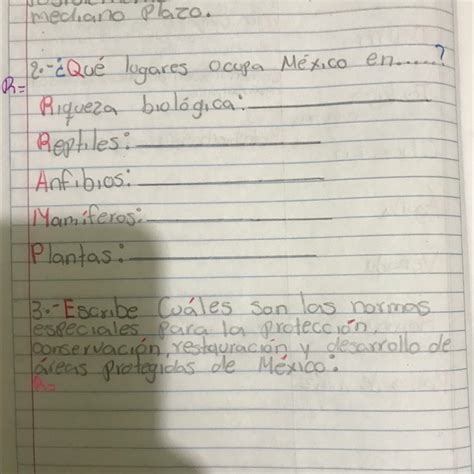 mediano plazo.
2.-¿Qué lugares ocupa México en.....?
R=
Riqueza biológica:
Reptiles:
Anfibios:
Mamíferos:
Plantas:
3.-Escribe Cuáles son las normas
especiales para la protección,
conservación, restauración y desarrollo de
áreas protegidas de México:
R=